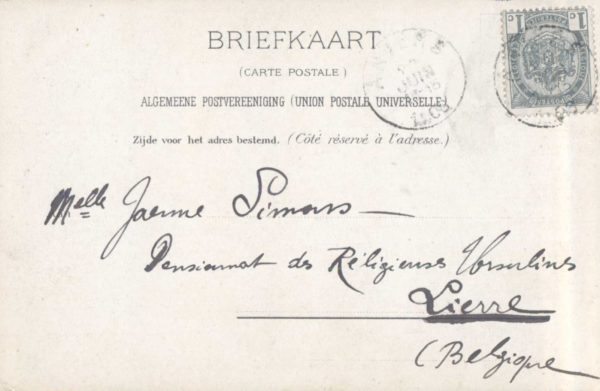 BRIEFKAART
(CARTE POSTALE)
ALGEMEENE POSTVEREENIGING (UNION POSTALE UNIVERSELLE)
Zijde voor het adres bestemd. (Côté réservé à l'adresse.)
1c 1c
JUIN
Melle Jaenne Simons
Pensionnat des Réligieuses Ursulines
Lierre
(Belgique